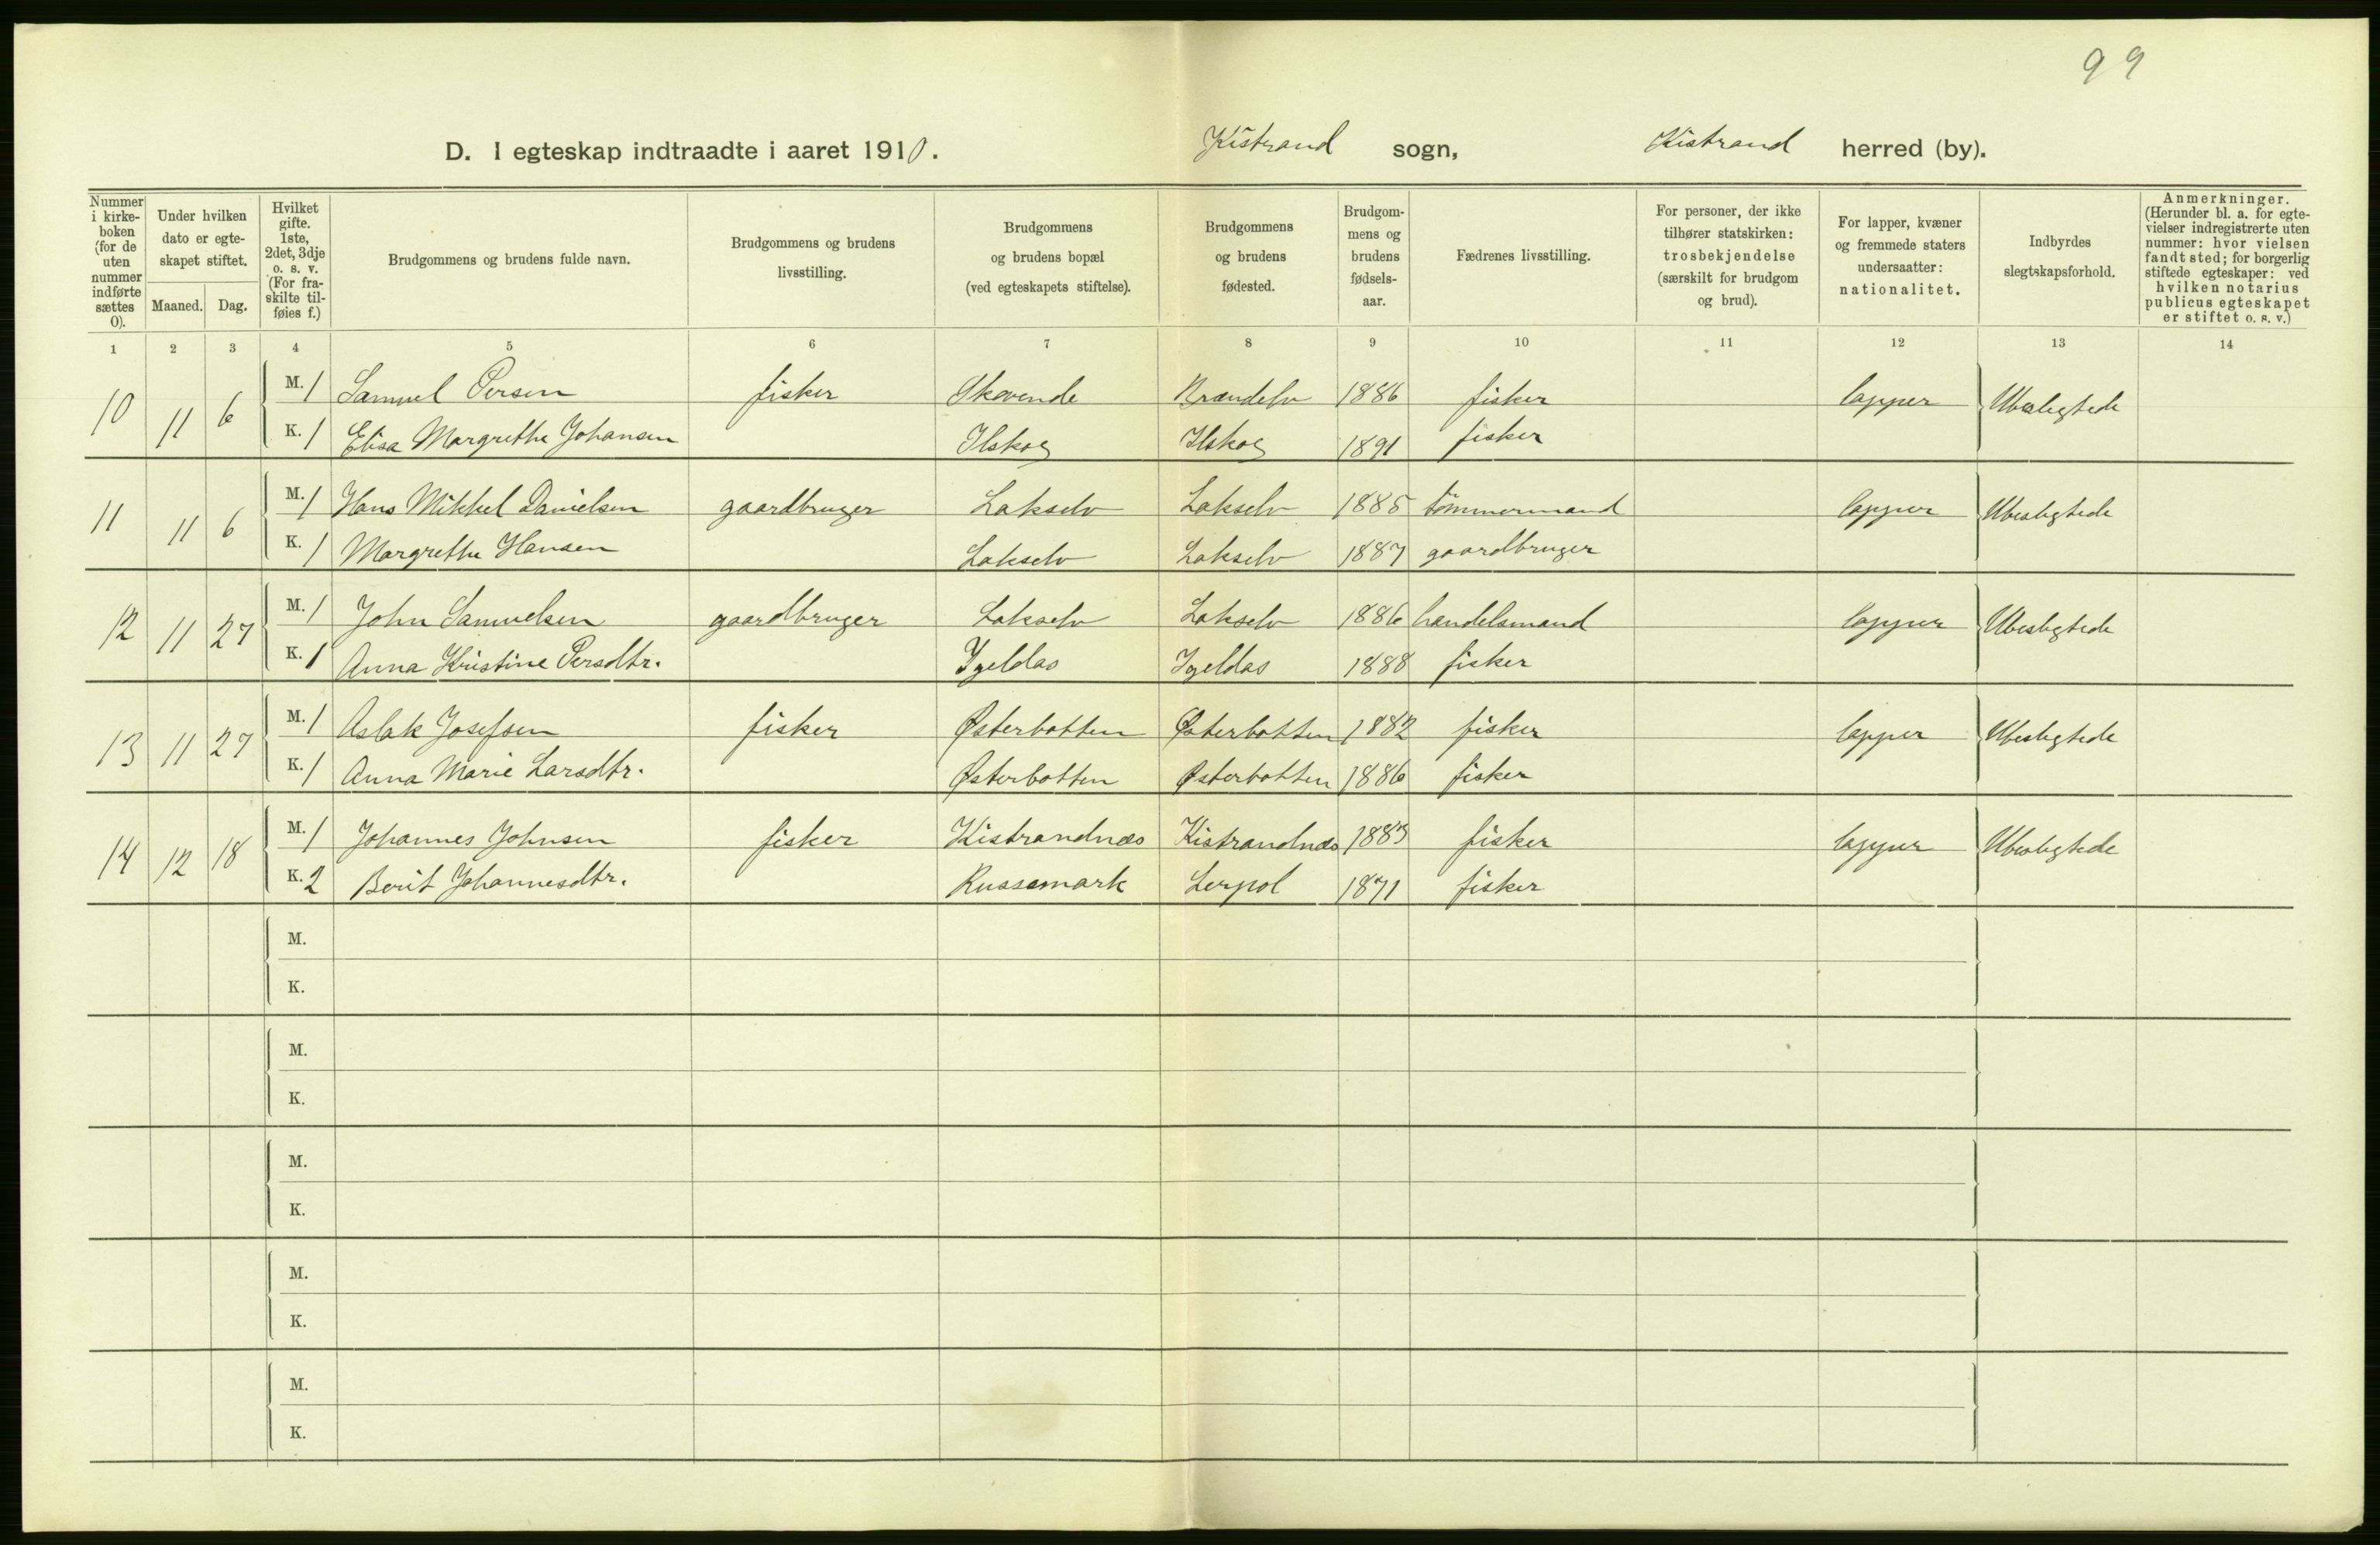 99
D. I egteskap indtraadte i aaret 1910. Kistrand sogn, Kistrand herred (by).
Nummer i kirke-boken (for de uten nummer indførte sættes 0). Under hvilken dato er egte-skapet stiftet. Maaned. Dag. Hvilket gifte. 1ste, 2det, 3dje o. s. v. (For fra-skilte til-føies f.) Brudgommens og brudens fulde navn. Brudgommens og brudens livsstilling. Brudgommens og brudens bopæl (ved egteskapets stiftelse). Brudgommens og brudens fødested. Brudgom-mens og brudens fødsels-aar. Fædrenes livsstilling. For personer, der ikke tilhører statskirken: trosbekjendelse (særskilt for brudgom og brud). For lapper, kvæner og fremmede staters undersaatter: nationalitet. Indbyrdes slegtskapsforhold. Anmerkninger. (Herunder bl. a. for egte-vielser indregistrerte uten nummer: hvor vielsen fandt sted; for borgerlig stiftede egteskaper: ved hvilken notarius publicus egteskapet er stiftet o. s. v.)
1 2 3 4 5 6 7 8 9 10 11 12 13 14
10 11 6 M. 1 Samuel Persen fisker 1886 fisker lapper Ubeslegtede
K. 1 Elisa Margrethe Johansen Ilskog Ilskog 1891 fisker
11 11 6 M. 1 Hans Mikkel Danielsen gaardbruger Lakselv Lakselv 1885 tømmermand lapper Ubeslegtede
K. 1 Margrethe Hansen Lakselv Lakselv 1887 gaardbruger
12 11 27 M. 1 John Samuelsen gaardbruger Lakselv Lakselv 1886 handelsmand lapper Ubeslegtede
K. 1 Anna Kristine Persdtr. Igeldas Igeldas 1888 fisker
13 11 27 M. 1 Aslak Josefsen fisker Østerbotten Østerbotten 1882 fisker lapper Ubeslegtede
K. 1 Anna Marie Larsdtr. Østerbotten Østerbotten 1886 fisker
14 12 18 M. 1 Johannes Johnsen fisker Kistrandnæs Kistrandnæs 1883 fisker lapper Ubeslegtede
K. 2 Berit Johannesdtr. Russemark Lerpol 1871 fisker
M.
K.
M.
K.
M.
K.
M.
K.
M.
K.